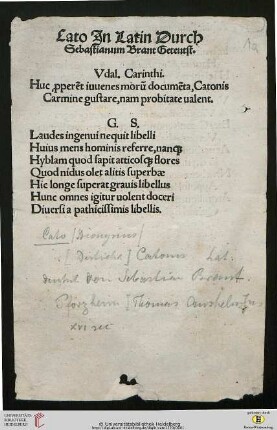 Cato In Latin Durch
Sebastianum Brant Geteutst.
Vdal. Carinthi.
Huc ꝓperẽt iuuenes morũ documẽta, Catonis
Carmine gustare, nam probitate ualent.
G. S.
Laudes ingenuj nequit libelli
Huius mens hominis referre, nanqȝ
Hyblam quod sapit atticosqȝ flores
Quod nidus olet alitis superbæ
Hic longe superat grauis libellus
Hunc omnes igitur uolent doceri
Diuersi a pathicissimis libellis.
Cato (Dionysius)
Catonis Lat.
von Sebastian Brant.
Pforzheim (Thomas Anshelm
XVI sec
UNIVERSITÄTS-
BIBLIOTHEK
HEIDELBERG
© Universitätsbibliothek Heidelberg